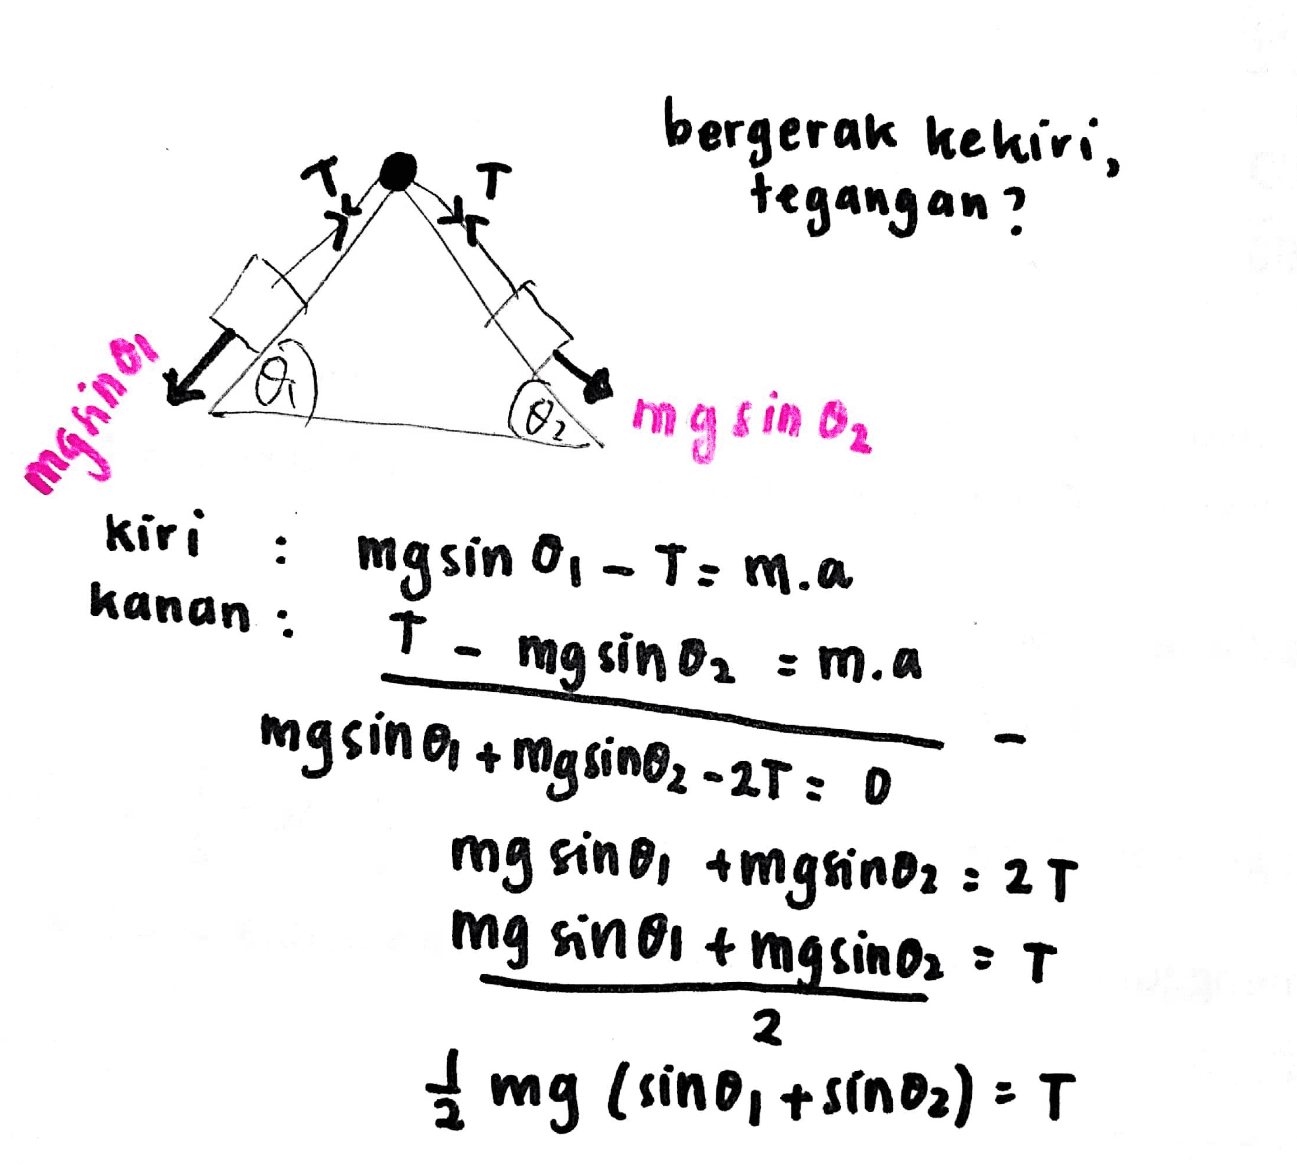 bergerak kekiri,
tegangan?
T T
θ₁
θ₂
mg sin θ₁
mg sin θ₂
kiri : mg sin θ₁ - T = m.a
kanan : T - mg sin θ₂ = m.a
-
mg sin θ₁ + mg sin θ₂ - 2T = 0
mg sin θ₁ + mg sin θ₂ = 2T
mg sin θ₁ + mg sin θ₂ = T
2
½ mg (sin θ₁ + sin θ₂) = T